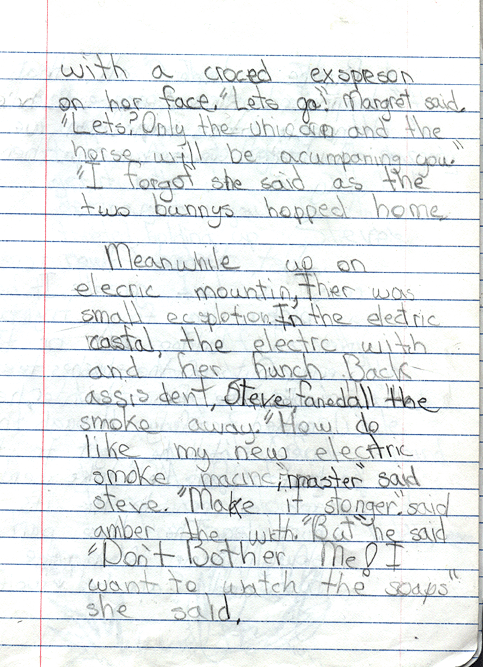 with a croced exspreson
on her face. "Lets go!" Margret said.
"Lets? Only the unicorn and the
horse will be acumpaning you."
"I forgot" she said as the
two bunnys hopped home
Meanwhile up on
elecric mountin, ther was
small ecsplotion. In the electric
castal, the electrc with
and her hunch Back
assisdent, Steve faned all the
smoke away. "How do
like my new electric
smoke macine, master" said
steve. "Make it stonger." said
amber the with. "But" he said
"Don't Bother Me! I
want to watch the soaps"
she said.